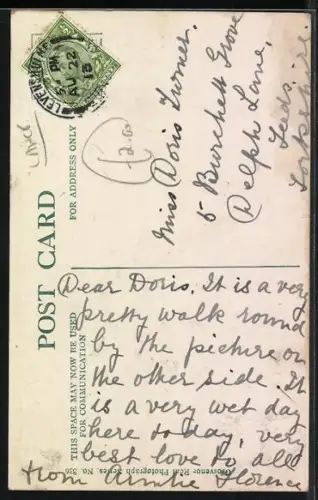 LEVENSHULME
5. PM
AU 22
13
POST CARD
FOR ADDRESS ONLY
THIS SPACE MAY NOW BE USED
FOR COMMUNICATION
Miss Doris Turner.
5 Burchett Grove
Delph Lane,
Leeds.
Yorkshire
Dear Doris. It is a very
pretty walk round
by the picture on
the other side. It
is a very wet day
here today, very
best love to all
from Auntie Florence
Grosvenor Real Photograph Series. No.